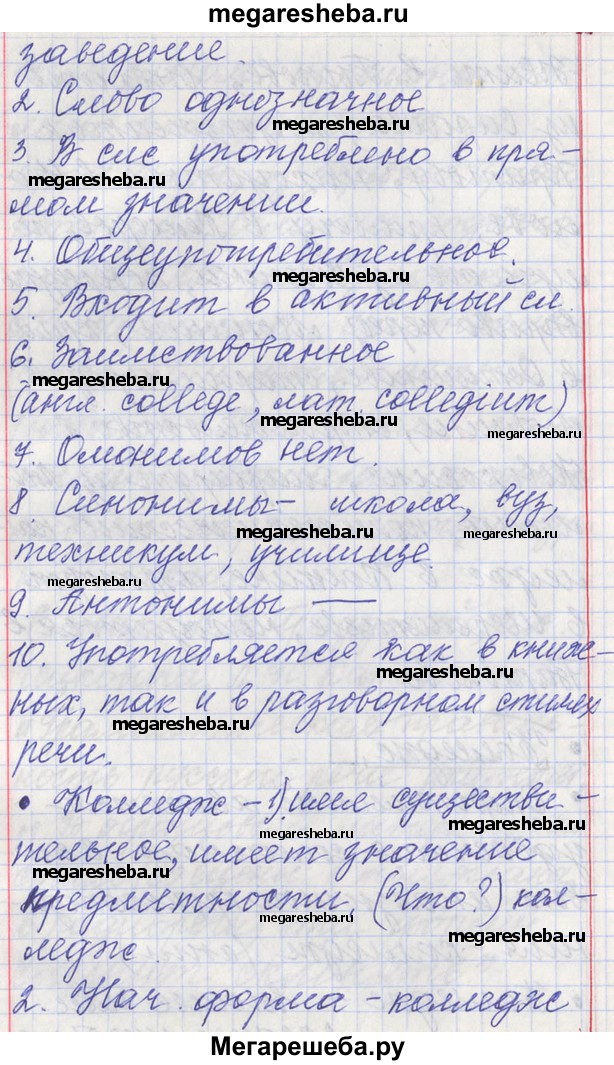 megaresheba.ru
заведение.
2. Слово однозначное
megaresheba.ru
3. В слс употреблено в пря-
megaresheba.ru
мом значении.
4. Общеупотребительное.
megaresheba.ru
5. Входит в активный сл.
6. Заимствованное
megaresheba.ru
(англ. college, лат. collegium)
megaresheba.ru
7. Омонимов нет.
8. Синонимы - школа, вуз,
megaresheba.ru
техникум, училище.
megaresheba.ru
9. Антонимы —
10. Употребляется как в книж-
megaresheba.ru
ных, так и в разговорном стилях
megaresheba.ru
речи.
• Колледж - 1) имя существи-
megaresheba.ru
тельное, имеет значение
предметности. (Что?) кол-
megaresheba.ru
megaresheba.ru
ледж.
2. Нач. форма - колледж
Мегарешеба.ру